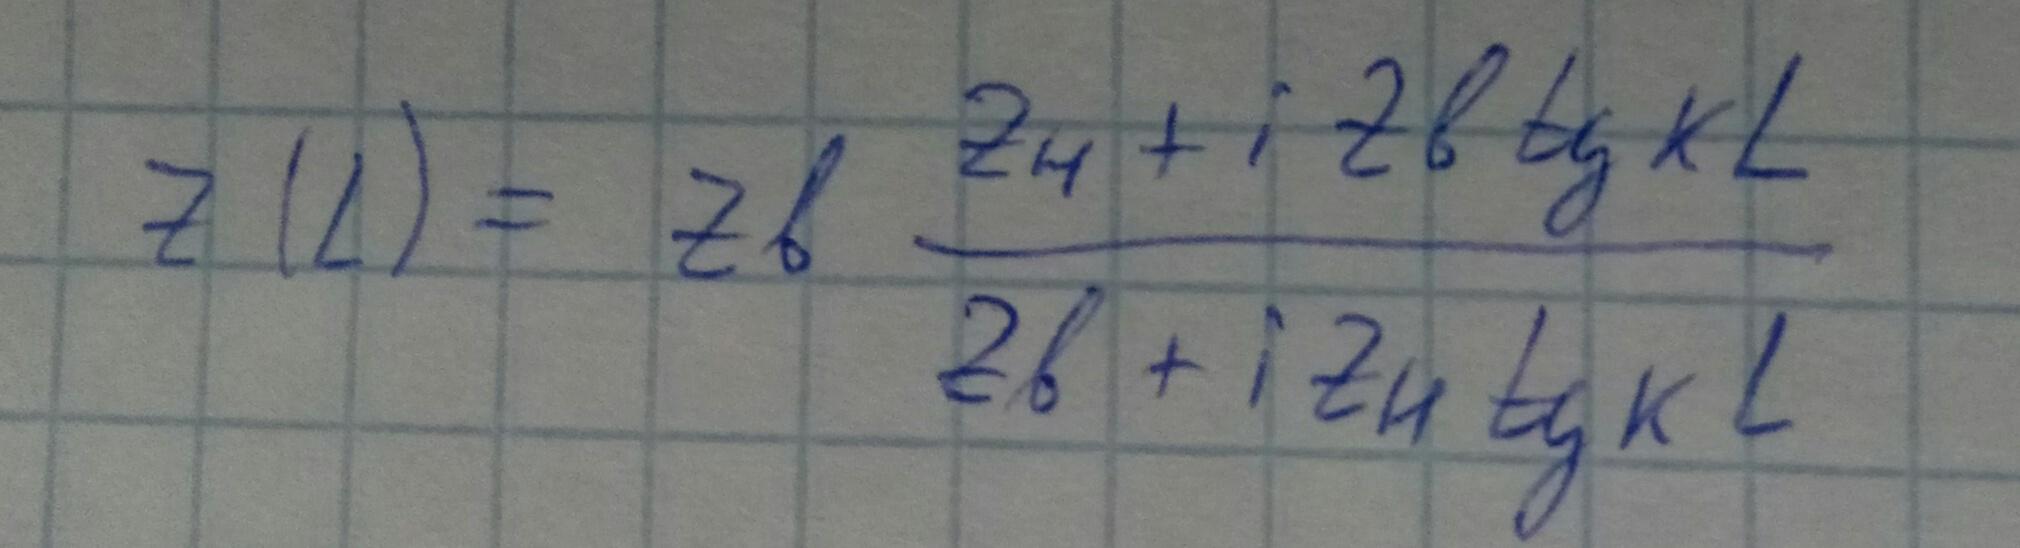 z(L) = zв (zн + i zв tg кL) / (zв + i zн tg кL)